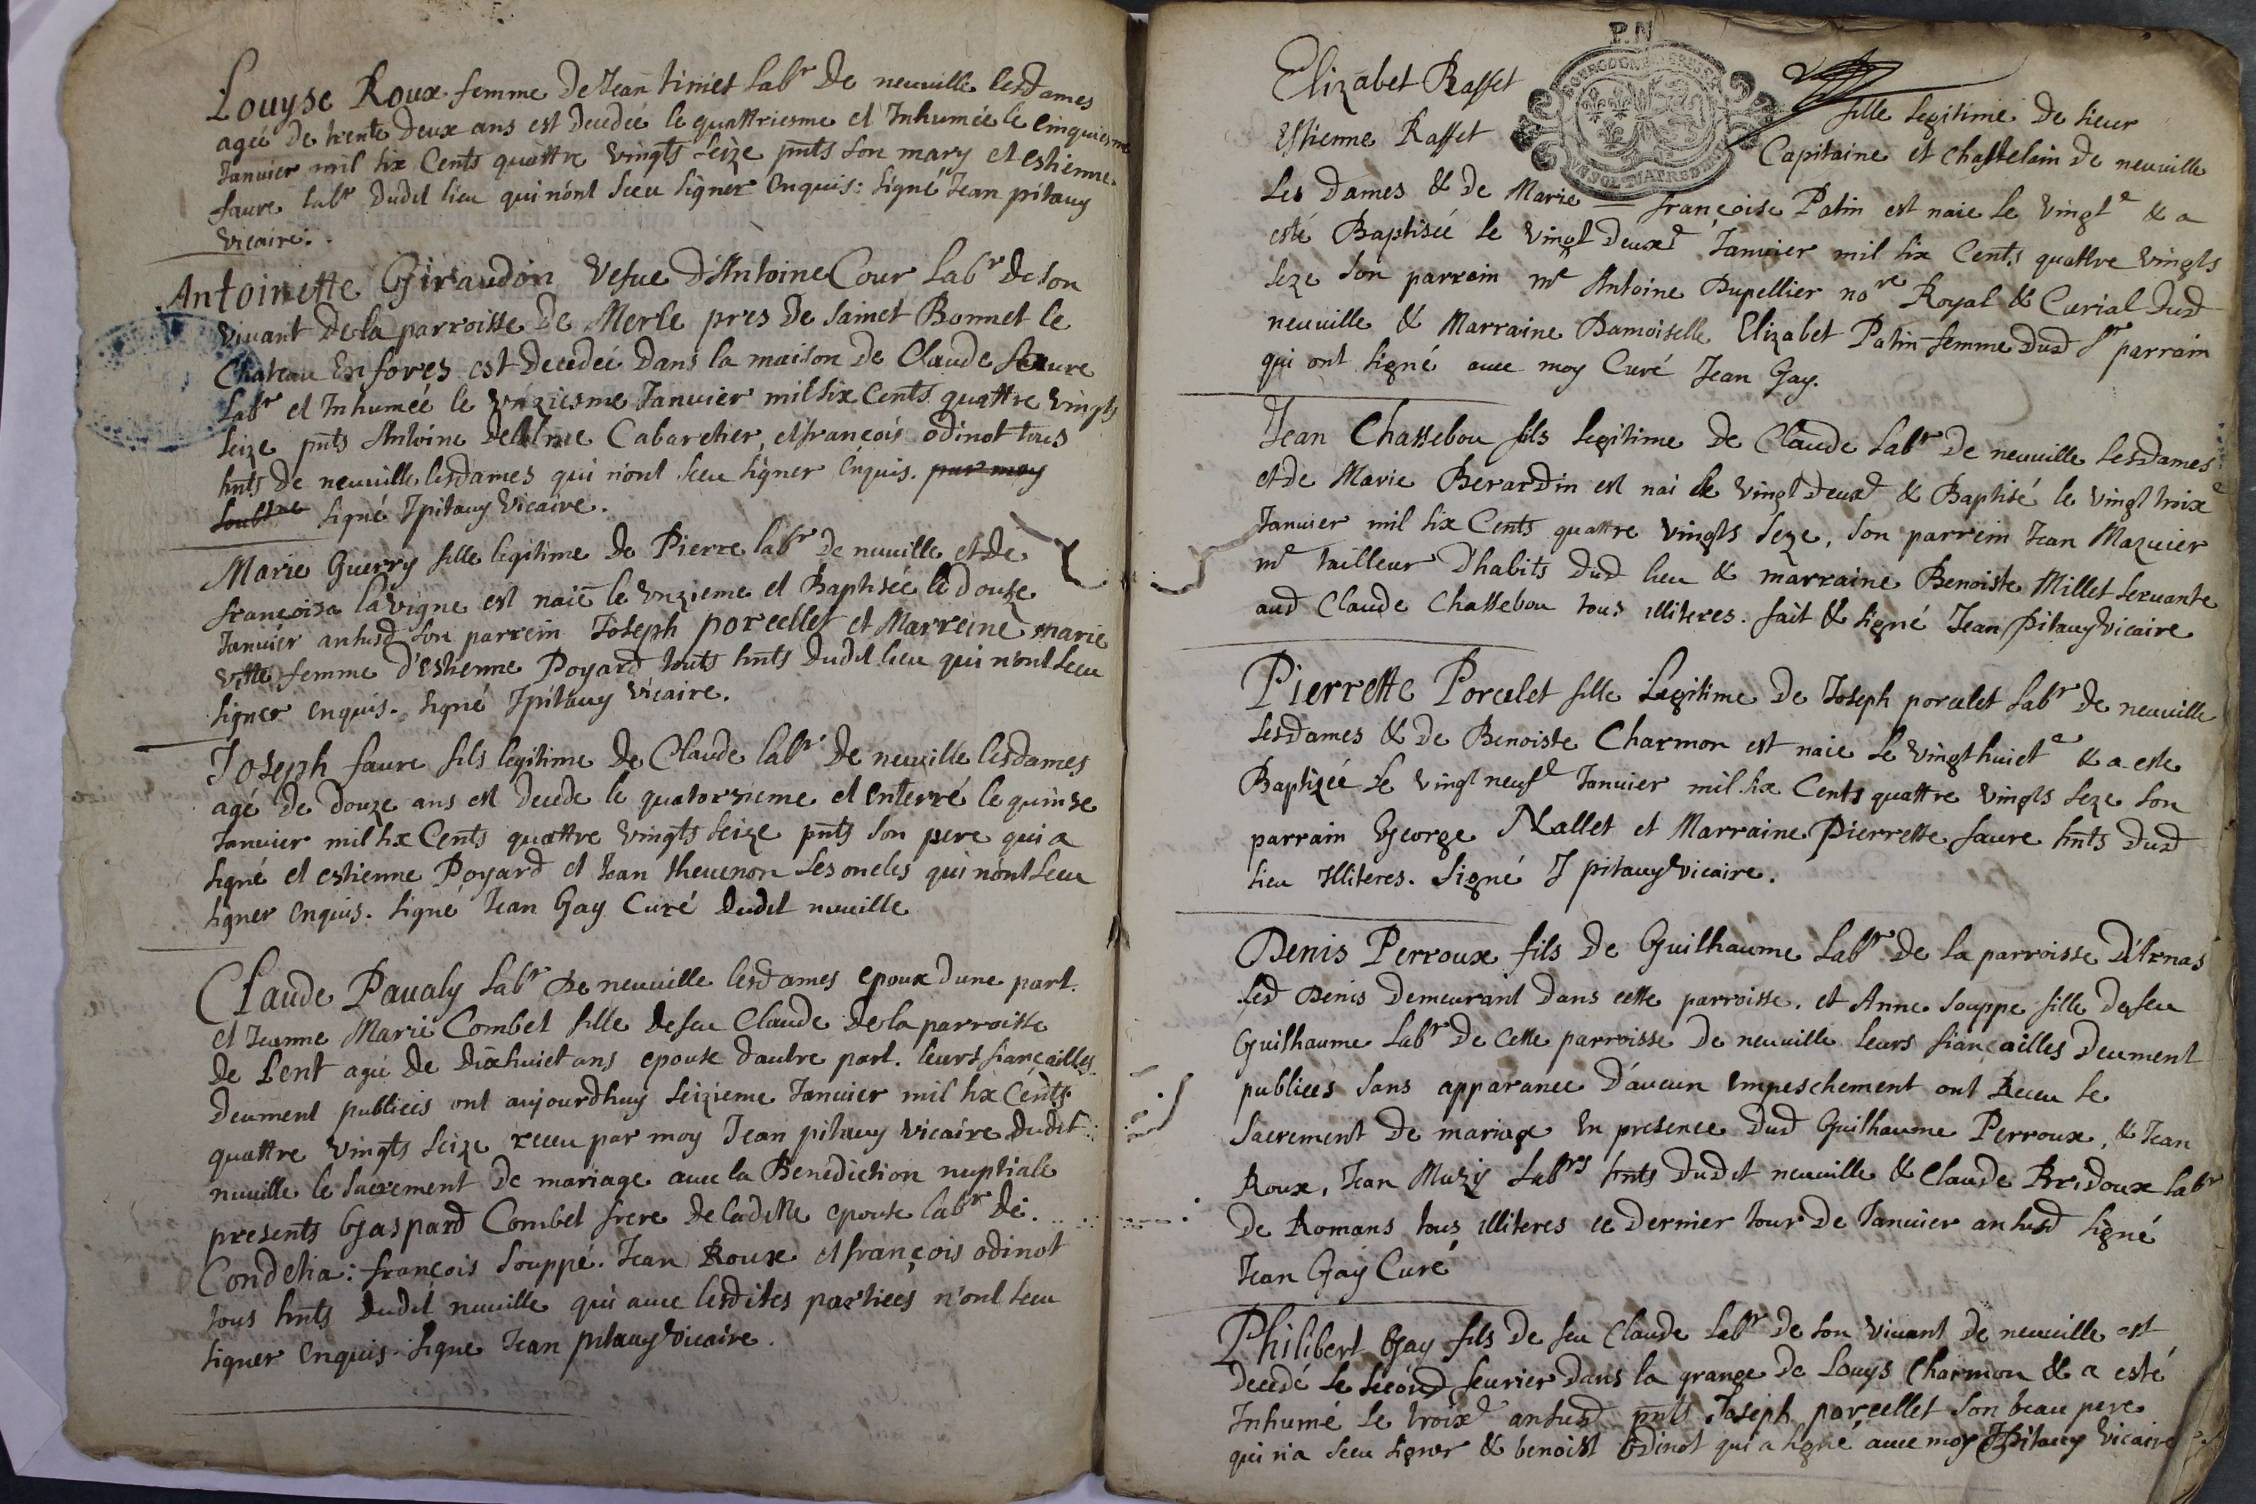 Louyse Roux femme de Jean timet labr de neuville lesdames
ageé de trente deux ans est decedeé le quattriesme et Inhumeé le cinquiesme
Januier mil six Cents quattre vingts seize pnts son mary et estienne
faure labr dudit lieu qui n'ont sceu signer enquis: signé Jean pitauy
vicaire.
Antoinette Giraudon vefue d'Antoine Cour labr de son
viuant de la parroisse de Merle pres de sainct Bonnet le
Chateau En fores est decedeé dans la maison de Claude faure
labr et Inhumeé le vnziesme Januier mil six Cents quattre vingts
seize pnts Antoine Cabaretier, et françois odinot tous
hnts de neuville lesdames qui n'ont sceu signer enquis. par moy
soubsne signé Jpitauy vicaire.
Marie Guerry fille legitime de Pierre labr de neuville et de
françoisa lavigne est naié le vnzieme et Baptisée le douze
Januier an susd son parrein Joseph porcellet et Marreine marie
vitte femme d'estienne Poyard touts hnts dudit lieu qui n'ont sceu
signer enquis. signé Jpitauy vicaire.
Joseph faure fils legitime de Claude labr de neuville lesdames
agé de douze ans est decede le quatorzieme et enterré le quinze
Januier mil six Cents quattre vingts seize pnts son pere qui a
signé et estienne Poyard et Jean theuenon ses oncles qui n'ont sceu
signer enquis. signé Jean Gay Curé dudit neuville
Claude Paualy labr de neuville lesdames epoux dune part.
et Jeanne Marie Combet fille de feu Claude de la parroisse
de Lent ageé de dixhuict ans epouse dautre part. leurs fiançailles
deument publieés ont aujourdhuy seizieme Januier mil six Cents
quattre vingts seize receu par moy Jean pitauy vicaire dudit
neuville le sacrement de mariage auec la Benediction nuptiale
presents Gaspard Combet frere de laditte epouse labr de
Condelia: françois souppé. Jean Roux et françois odinot
tous hnts dudit neuville qui auec lesdites partieés n'ont sceu
signer enquis. signe Jean pitauy vicaire.
P.N
Elizabet Raffet fille legitime de sieur
Estienne Raffet Capitaine et chastelain de neuville
les dames & de Marie françoise Patin est naie le vingte & a
esté Baptiseé le vingt deuxe Januier mil six Cents quattre vingts
seze son parrein mre Antoine Dupellier nore Royal & Curial dud
neuville & Marraine Damoiselle Elizabet Patin femme dud sr parrain
qui ont signé auec moy Curé Jean Gay.
Jean Chassebou fils legitime de Claude labr de neuville lesdames
et de Marie Berardin est nai le vingt deuxe & Baptisé le vingt troixe
Januier mil six Cents quattre vingts seze, son parrein Jean Mazuier
me tailleur d'habits dud lieu & marraine Benoiste Millet seruante
aud Claude Chassebou tous illiteres. fait & signé Jean Pitauy vicaire
Pierrette Porcelet fille Legitime de Joseph porcelet labr de neuville
lesdames & de Benoiste Charmon est naie le vingthuicte & a este
Baptizeé le vingt neufe Januier mil six Cents quattre vingts seze son
parrain George Nallet et Marraine Pierrette faure hnts dud
lieu Illiteres. signé J pitauy vicaire.
Denis Perroux fils de Guilhaume labr de la parroisse d'Arnas
led Denis demeurant dans cette parroisse. et Anne souppe fille de feu
Guilhaume labr de cette parroisse de neuville leurs fiançailles deument
publieés sans apparance d'aucun empeschement ont Receu le
sacrement de mariage En presence dud Guilhaume Perroux, & Jean
Roux, Jean Muzy labrs hnts dudit neuville & Claude Bridoux labr
de Romans tous illiteres ce dernier Jour de Januier an susd signé
Jean Gay Curé
Philibert Gay fils de feu Claude labr de son viuant de neuville est
decedé le second feurier dans la grange de Louys Charmon & a esté
Inhumé le troixe an susd pnts Joseph porcellet son beau pere
qui n'a sceu signer & benoist odinot qui a signé auec moy JPitauy vicaire